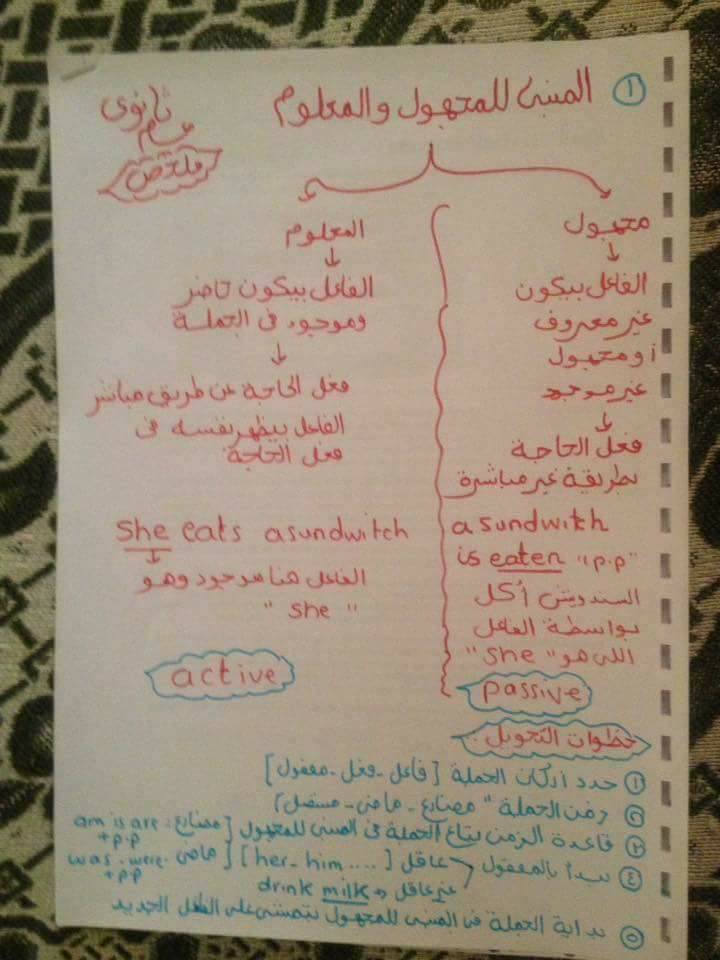 ① المبنى للمجهول والمعلوم
ثانوى
عام
ملخص
مجهول
الفاعل بيكون
غير معروف
او مجهول
غير موجود
فعل الحاجة
بطريقة غير مباشرة
a sundwitch
is eaten "p.p"
السندويتش أكل
بواسطة الفاعل
اللى هو "she"
passive
المعلوم
الفاعل بيكون حاضر
وموجود فى الجملة
فعل الحاجة عن طريق مباشر
الفاعل بيظهر نفسه فى
فعل الحاجة
she eats a sundwitch
الفاعل هنا موجود وهو
"she"
active
خطوات التحويل:
① حدد اركان الجملة [فاعل - فعل - مفعول]
② زمن الجملة "مضارع - ماضى - مستقبل"
③ قاعدة الزمن بتاع الجملة فى المبنى للمجهول [مضارع: am is are + p.p
[ماضى: was - were + p.p
④ نبدأ بالمفعول عاقل [her - him ....]
غير عاقل → drink milk
⑤ بداية الجملة فى المبنى للمجهول بتمشى على الفعل الجديد